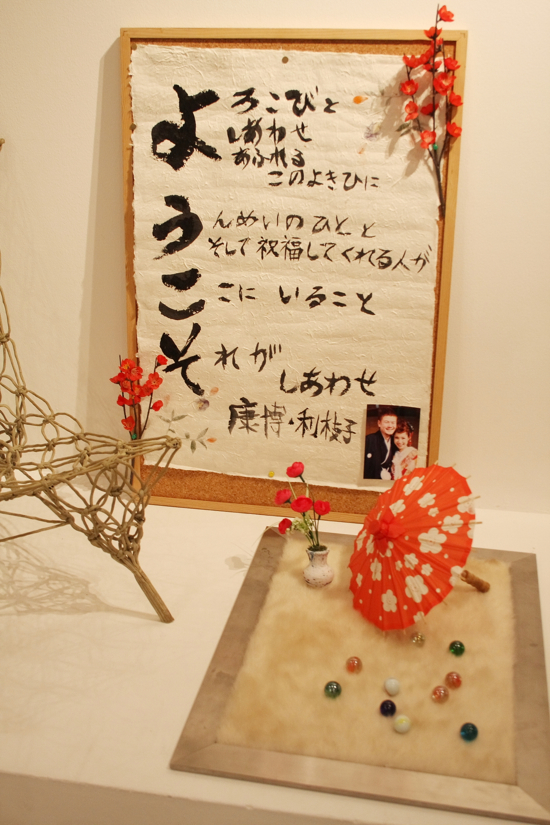 よろこびと
しあわせ
あふれる
このよきひに
うんめいのひとと
そして祝福してくれる人が
ここに いること
それが
しあわせ
康博・利枝子